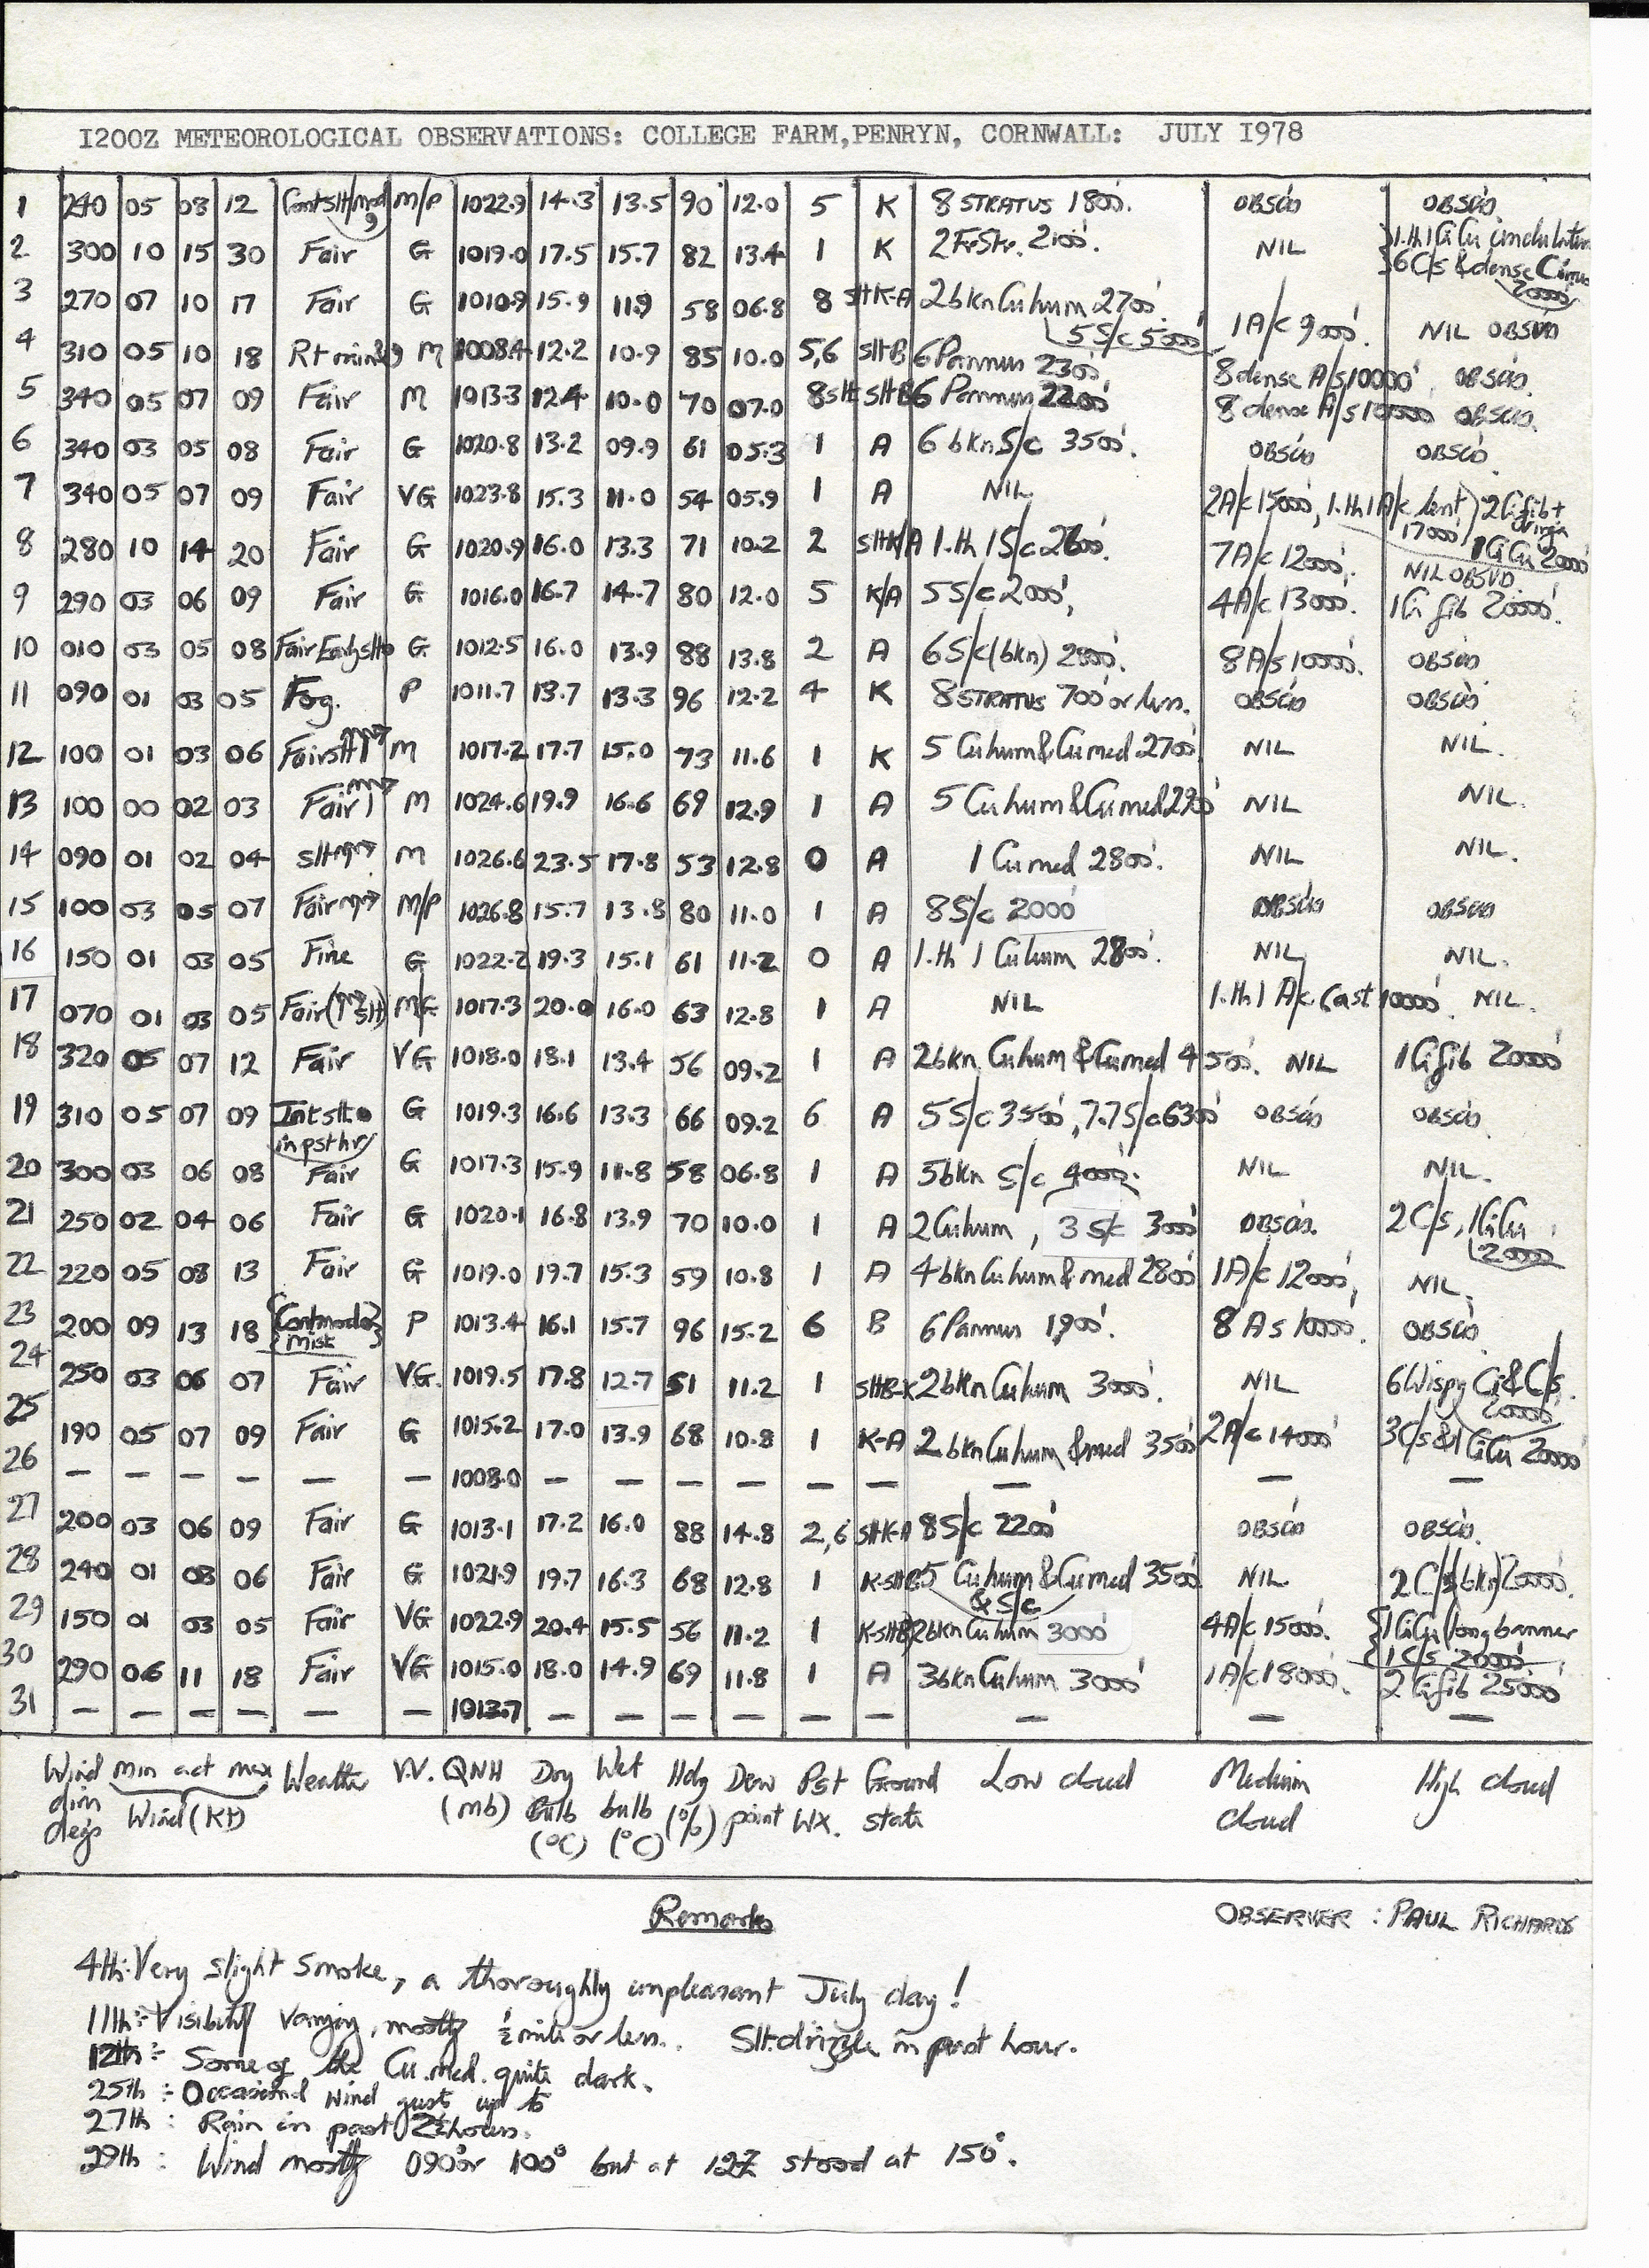 1200Z METEOROLOGICAL OBSERVATIONS: COLLEGE FARM,PENRYN, CORNWALL: JULY 1978
1 240 05 08 12 M/P 1022.9 14.3 13.5 90 12.0 5 K 8 STRATUS 1800'. OBSCD OBSCD
2 300 10 15 30 Fair G 1019.0 17.5 15.7 82 13.4 1 K 2 FrStr. 2100'. NIL 1.th 1 CiCu undulatus
6 C/s & dense Cirrus 20000'
3 270 07 10 17 Fair G 1010.9 15.9 11.9 58 06.8 8 SltK-A 2 bkn Cu hum 2700'. 5 S/c 5000' 1 A/c 9000'. NIL OBSVD
4 310 05 10 18 M 1008.4 12.2 10.9 85 10.0 5,6 SltB 6 Pannus 2300' 8 dense A/s 10000'. OBSCD.
5 340 05 07 09 Fair M 1013.3 12.4 10.0 70 07.0 8slt SltB 6 Pannus 2200' 8 dense A/s 10000' OBSCD.
6 340 03 05 08 Fair G 1020.8 13.2 09.9 61 05.3 1 A 6 bkn S/c 3500'. OBSCD OBSCD.
7 340 05 07 09 Fair VG 1023.8 15.3 11.0 54 05.9 1 A NIL 2A/c 15000', 1.th 1 A/c lent 17000' 2 Ci fib + 1 CiCu 20000'
8 280 10 14 20 Fair G 1020.9 16.0 13.3 71 10.2 2 SltK/A 1.th 1 S/c 2600'. 7A/c 12000'. NIL OBSVD.
9 290 03 06 09 Fair G 1016.0 16.7 14.7 80 12.0 5 K/A 5 S/c 2000', 4A/c 13000'. 1 Ci fib 20000'.
10 010 03 05 08 Fair Early slt G 1012.5 16.0 13.9 88 13.8 2 A 6 S/c (bkn) 2800'. 8 A/s 10000'. OBSCD
11 090 01 03 05 Fog. P 1011.7 13.7 13.3 96 12.2 4 K 8 STRATUS 700' or less. OBSCD OBSCD
12 100 01 03 06 Fair slt M 1017.2 17.7 15.0 73 11.6 1 K 5 Cu hum & Cu med 2700' NIL NIL.
13 100 00 02 03 Fair M 1024.6 19.9 16.6 69 12.9 1 A 5 Cu hum & Cu med 2900' NIL NIL.
14 090 01 02 04 slt M 1026.6 23.5 17.8 53 12.8 0 A 1 Cu med 2800'. NIL NIL.
15 100 03 05 07 Fair M/P 1026.8 15.7 13.8 80 11.0 1 A 8 S/c 2000' OBSCD OBSCD
16 150 01 03 05 Fine G 1022.2 19.3 15.1 61 11.2 0 A 1.th 1 Cu hum 2800'. NIL NIL.
17 070 01 03 05 Fair M/G 1017.3 20.0 16.0 63 12.8 1 A NIL 1.th 1 A/c Cast 10000'. NIL.
18 320 05 07 12 Fair VG 1018.0 18.1 13.4 56 09.2 1 A 2 bkn Cu hum & Cu med 4500'. NIL 1 Ci fib 20000'
19 310 05 07 09 Int slt in pst hr G 1019.3 16.6 13.3 66 09.2 6 A 5 S/c 3500', 7.7 S/c 6300' OBSCD OBSCD.
20 300 03 06 08 Fair G 1017.3 15.9 11.8 58 06.8 1 A 5 bkn S/c 4000'. NIL NIL.
21 250 02 04 06 Fair G 1020.1 16.8 13.9 70 10.0 1 A 2 Cu hum, 3 S/c 3000' OBSCD. 2 C/s, 1 CiCu 20000'
22 220 05 08 13 Fair G 1019.0 19.7 15.3 59 10.8 1 A 4 bkn Cu hum & med 2800' 1 A/c 12000', NIL.
23 200 09 13 18 Cont mod Mist P 1013.4 16.1 15.7 96 15.2 6 B 6 Pannus 1900'. 8 As 10000'. OBSCD
24 250 03 06 07 Fair VG. 1019.5 17.8 12.7 51 11.2 1 SltB-K 2 bkn Cu hum 3000'. NIL 6 Wispy Ci & C/s. 20000'
25 190 05 07 09 Fair G 1015.2 17.0 13.9 68 10.8 1 K-A 2 bkn Cu hum & med 3500' 2A/c 14000' 3 C/s & 1 CiCu 20000'
26 — — — — — — 1008.0 — — — — — — — — —
27 200 03 06 09 Fair G 1013.1 17.2 16.0 88 14.8 2,6 SltK-A 8 S/c 2200' OBSCD OBSCD.
28 240 01 03 06 Fair G 1021.9 19.7 16.3 68 12.8 1 K-sltB 5 Cu hum & Cu med 3500' & S/c NIL 2 C/s (bkn) 20000'.
29 150 01 03 05 Fair VG 1022.9 20.4 15.5 56 11.2 1 K-sltB 2 bkn Cu hum 3000' 4A/c 15000'. 1 CiCu (long banner
1 C/s 20000'
30 290 06 11 18 Fair VG 1015.0 18.0 14.9 69 11.8 1 A 3 bkn Cu hum 3000' 1A/c 18000'. 2 Ci fib 25000'
31 — — — — — — 1013.7 — — — — — — — — —
Wind min act max Weather VV. QNH Dry Wet Hdy Dew Pst Ground Low cloud Medium High cloud
dirn Wind (Kt) (mb) Bulb bulb (%) point WX. state cloud
degs (°C) (°C)
Remarks OBSERVER : PAUL RICHARDS
4th: Very slight smoke, a thoroughly unpleasant July day!
11th:- Visibility varying, mostly ½ mile or less. Slt. drizzle in past hour.
12th:- Some of the Cu. med. quite dark.
25th :- Occasional wind gusts up to
27th : Rain in past 2½ hours.
29th : Wind mostly 090° or 100° but at 12Z stood at 150°.